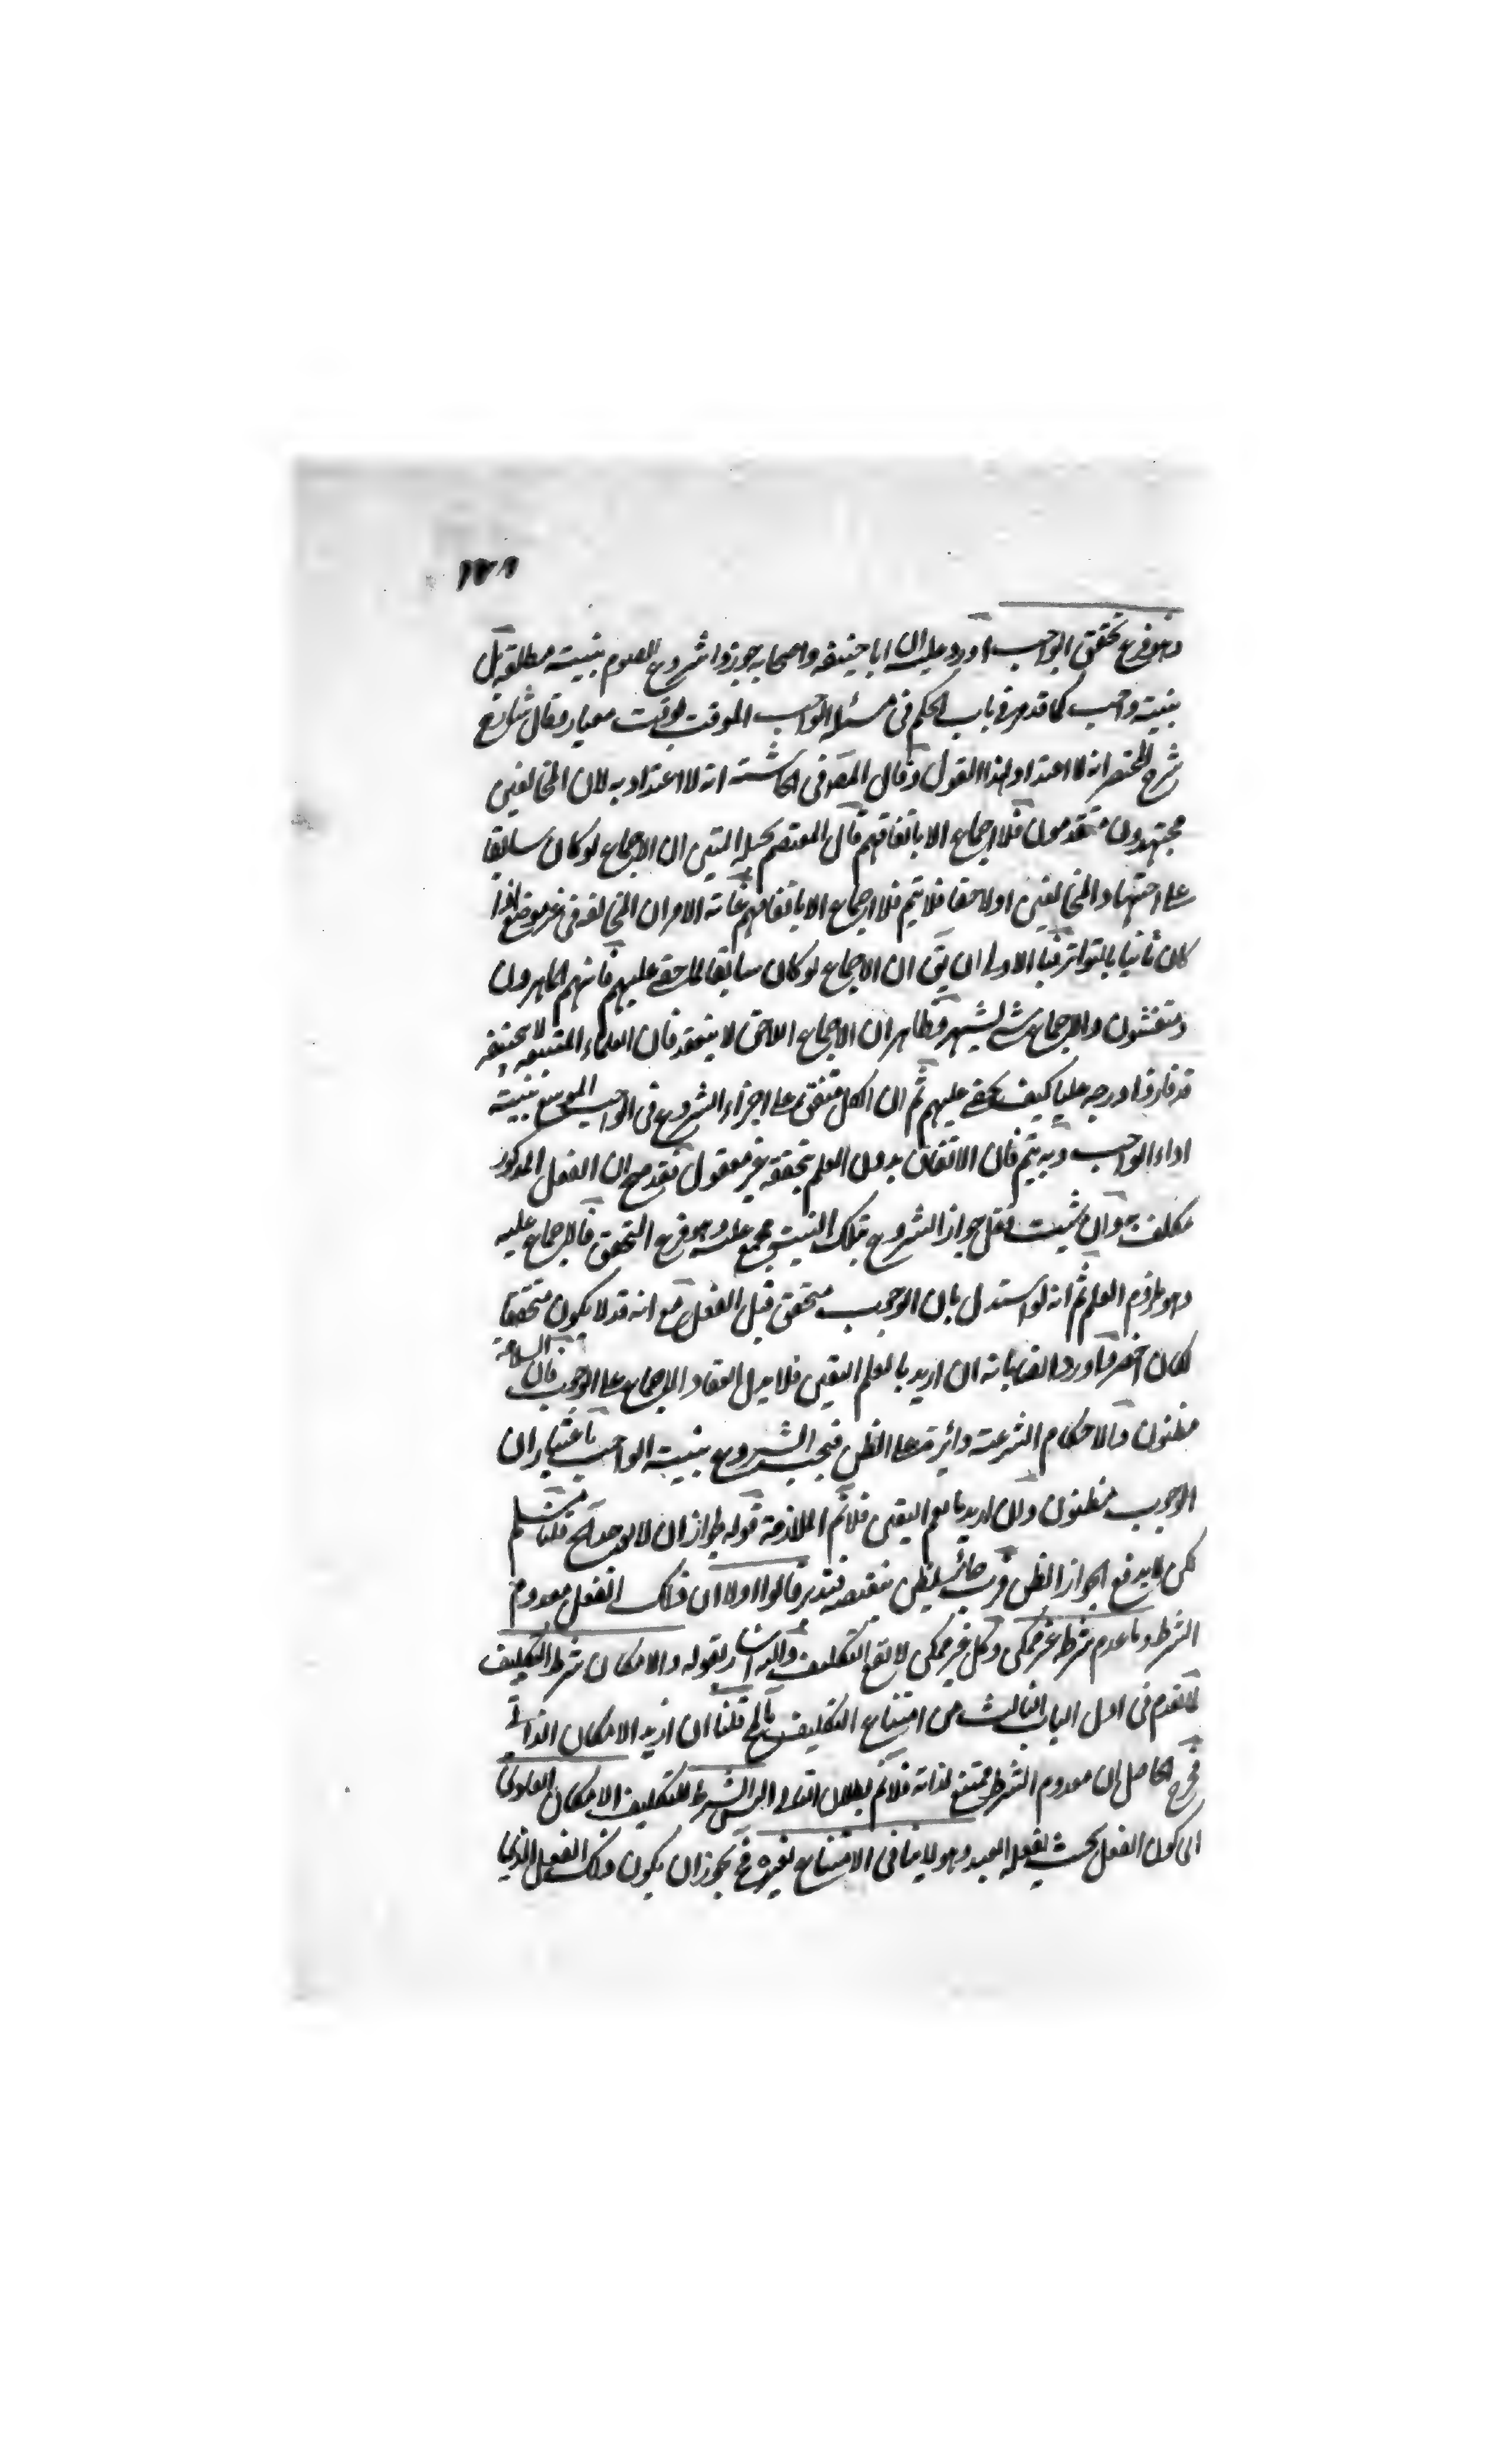 وهو فرع تحقق الواجب اورد عليه ان ابا حنيفة واصحابه جوزوا شروع الصوم بنية مطلقة بل
بنية واجب كما قد مر في باب الحكم في مسئلة الواجب الموقت بوقت معيار وقال شارح
شرح المختصر انه لا اعتداد لهذا القول وقال المص في الحاشية انه لا اعتداد به لان المخالفين
مجتهدون متقدمون فلا اجماع الا باتفاقهم قال المعتصم بحبل المتين ان الاجماع لو كان سابقا
على اجتهاد المخالفين او لاحقا فلا يتم فلا اجماع الا باتفاقهم غاية الامر ان المخالفة في غير موضع اذا
كان ثابتا بالتواتر فبنا الاولى ان يق ان الاجماع لو كان سابقا لما خفي عليهم فانهم الماهرون
ومتفتشون والاجماع يشتهر وظاهر ان الاجماع اللاحق لا ينعقد فان العلماء المتبعة لابيحنيفه
قد فازوا درجة عليا كيف يخفى عليهم ثم ان الكل متفق على اجزاء الشروع في الواجب الموسع بنية
اداء الواجب وبه يتم فان الاتفاق بدون العلم بتحققه غير معقول فقد صح ان الفعل المذكور
مكلف به وان شيت فقل جواز الشروع بتلك النية مجمع عليه وهو فرع التحقق فالاجماع عليه
وهو ملزوم العلم ثم انه لو استدل بان الوجوب متحقق قبل الفعل مع انه قد لا يكون متحققا
لكان اخصر واورد ايضا بانه ان اريد بالعلم اليقين فلا يدل انعقاد الاجماع على الوجوب فان السلامة
مظنون والاحكام الشرعية دائرة على الظن فيجب الشروع بنية الواجب باعتبار ان
الوجوب مظنون وان اريد بالعلم اليقين فلانم الملازمة قوله لجواز ان لا يوجد الخ قلنا مسلم
لكن لا يدفع الجواز الظن فرب جائز يظن نقيضه فتدبر قالوا اولا ان ذلك الفعل معدوم
الشرط وما عدم شرطه غير ممكن وكل غير ممكن لا يقع التكليف واليه اشار بقوله والامكان شرط التكليف
لما تقدم في اول الباب الثالث من امتناع التكليف بالمح قلنا ان اريد الامكان الذاتي
فرجع الحاصل ان معدوم الشرط ممتنع لذاته فلانم بطلان التالي اذ ليس الشرط للتكليف الا الامكان العادي
اي كون الفعل بحيث يفعله العبد وهو لا ينافي الامتناع لغيره فح يجوز ان يكون ذلك الفعل الذي